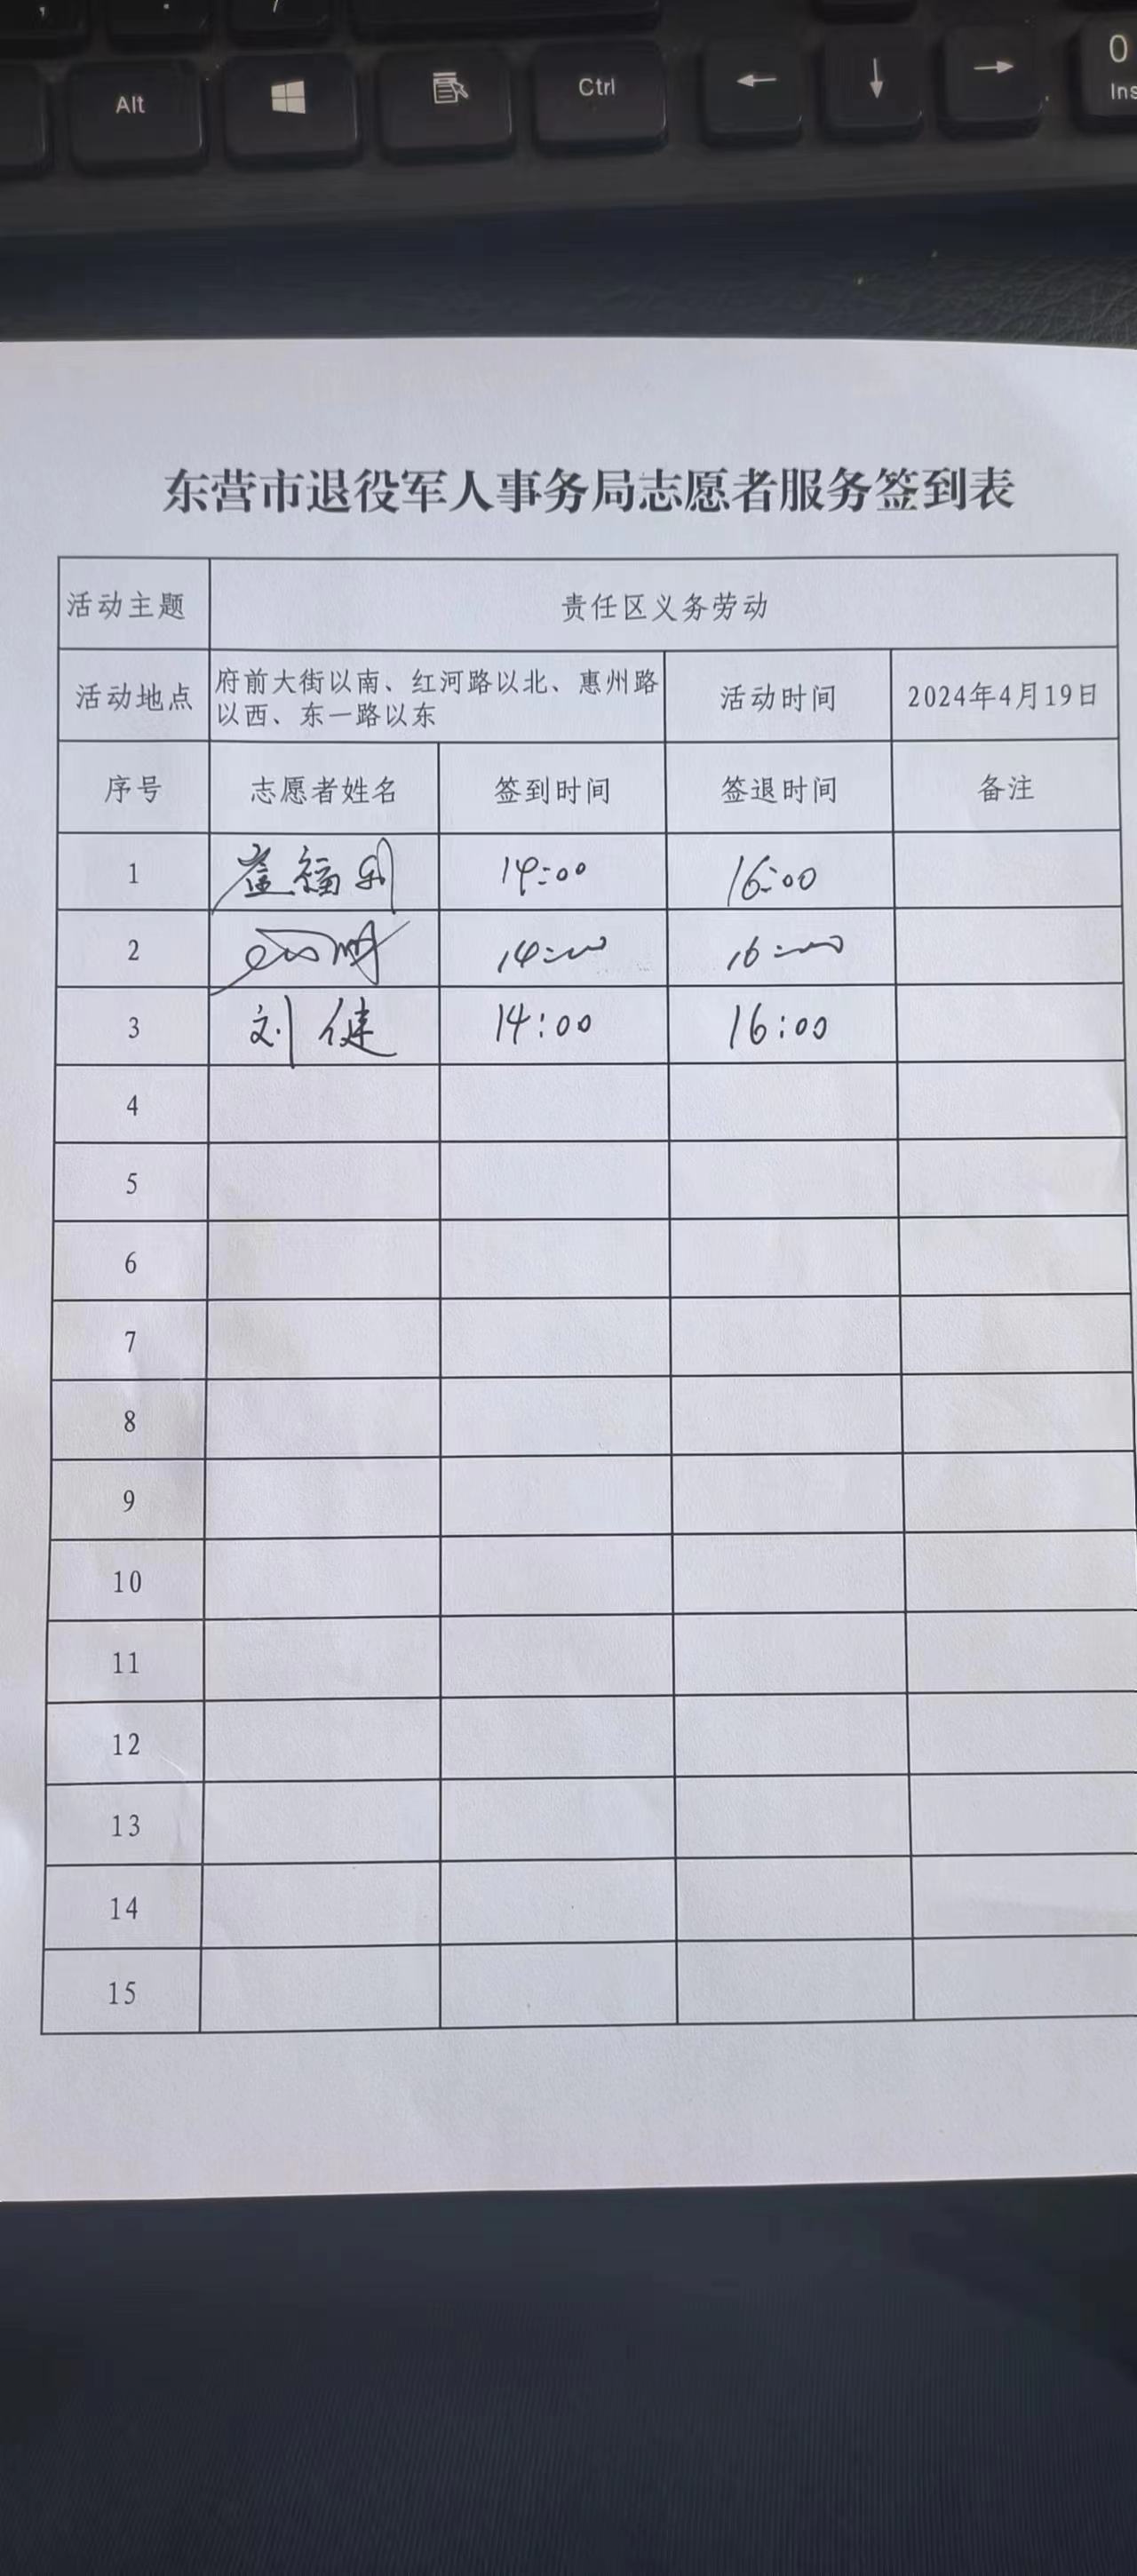 Alt
Ctrl
0
Ins
东营市退役军人事务局志愿者服务签到表
活动主题
责任区义务劳动
活动地点
府前大街以南、红河路以北、惠州路
以西、东一路以东
活动时间
2024年4月19日
序号 志愿者姓名 签到时间 签退时间 备注
1 崔福 14:00 16:00
2 14:00 16:00
3 刘健 14:00 16:00
4
5
6
7
8
9
10
11
12
13
14
15